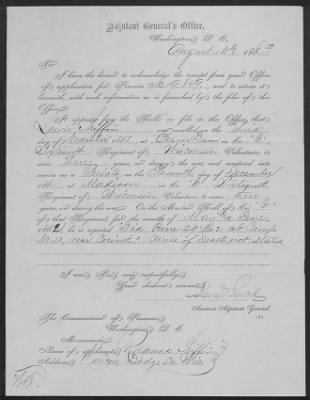 Adjutant General's Office,
Washington, D. C.
August 12th, 1863
Sir:
I have the honor to acknowledge the receipt from your Office
of application for Pension No. and to return it
herewith, with such information as is furnished by the files of this
Office.
It appears from the Rolls on file in this Office, that
Lewis was enrolled on the third
day of 1861, at in Co.
Regiment of Wisconsin Volunteers, to
serve three years, or during the war, and mustered into
service as a Private on the Eleventh day of December
1861, at Madison, in Co. Sixteenth
Regiment of Wisconsin Volunteers, to serve three
years, or during the war. On the Muster Roll of Co.
of that Regiment, for the months of May & June
1862, he is reported at Camp
near Corinth. Cause of Death not stated
I am, Sir, very respectfully,
Your obedient servant,
Assistant Adjutant General.
The Commissioner of Pensions
Washington, D. C.
Memoranda:
Name of applicant,
Address, Dodge Co. Wis